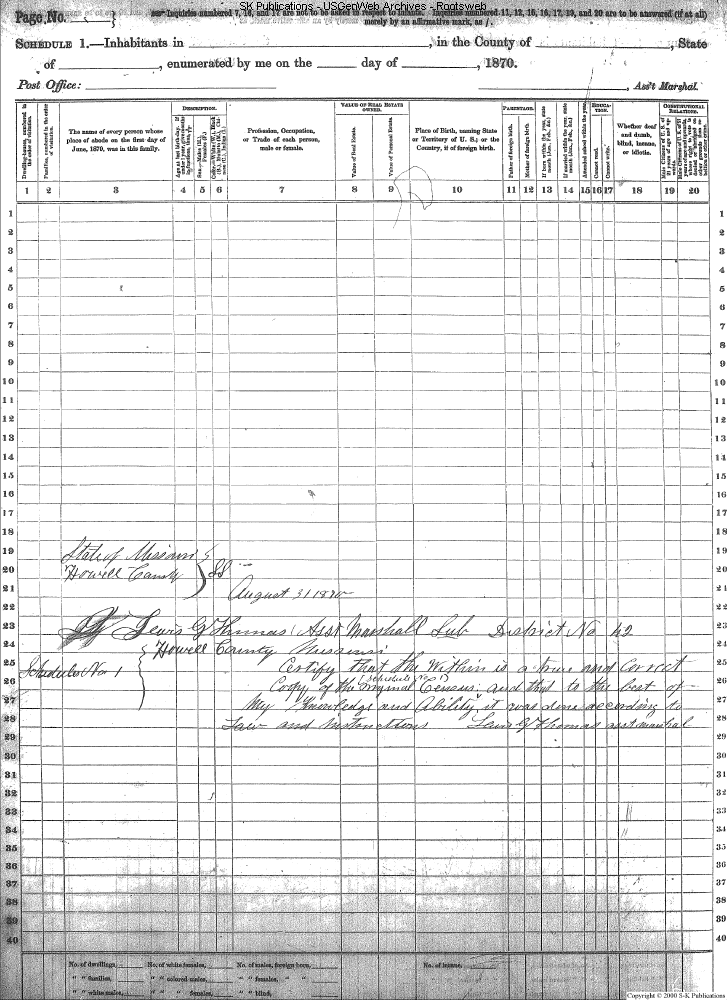 SK Publications - USGenWeb Archives - Rootsweb
Page No. }
Inquiries numbered 7, 16, and 17 are not to be asked in respect to infants. Inquiries numbered 11, 12, 15, 16, 17, 19, and 20 are to be answered (if at all)
merely by an affirmative mark, as /.
SCHEDULE 1.—Inhabitants in , in the County of , State
of , enumerated by me on the day of , 1870.
Post Office: , Ass't Marshal.
Dwelling-houses, numbered in the order of visitation.
Families, numbered in the order of visitation.
The name of every person whose place of abode on the first day of June, 1870, was in this family.
DESCRIPTION.
Sex.—Males (M.), Females (F.)
Profession, Occupation, or Trade of each person, male or female.
VALUE OF REAL ESTATE OWNED.
Value of Real Estate.
Value of Personal Estate.
Place of Birth, naming State or Territory of U. S.; or the Country, if of foreign birth.
PARENTAGE.
Father of foreign birth.
Mother of foreign birth.
If born within the year, state month (Jan., Feb., &c.)
If married within the year, state month (Jan., Feb., &c.)
Attended school within the year.
EDUCATION.
Cannot read.
Cannot write.
Whether deaf and dumb, blind, insane, or idiotic.
CONSTITUTIONAL RELATIONS.
1 2 3 4 5 6 7 8 9 10 11 12 13 14 15 16 17 18 19 20
1 1
2 2
3 3
4 4
5 5
6 6
7 7
8 8
9 9
10 10
11 11
12 12
13 13
14 14
15 15
16 16
17 17
18 18
19 State of Missouri 19
20 Howell County } SS 20
21 August 31 1870 21
22 22
23 I Lewis G Thomas Asst Marshall Sub District No 42 23
24 Howell County Missouri 24
25 Schedules No 1 Certify that the Within is a true and Correct 25
(Schedule No 1)
26 Copy of the original Census, and that to the best of 26
27 My Knowledge and Ability it was done according to 27
28 Law and instructions Lewis G Thomas asst marshal 28
29 29
30 30
31 31
32 32
33 33
34 34
35 35
36 36
37 37
38 38
39 39
40 40
No. of dwellings, No. of white females, No. of males, foreign born, No. of insane,
" " families, " " colored males, " " females, " "
" " white males, " " females, " " blind,
Copyright © 2000 S-K Publications